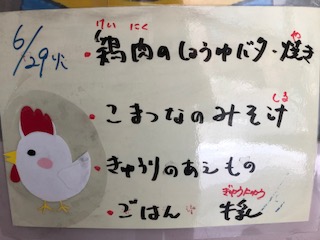 6/29火
けい にく や
・鶏肉のしょうゆバター焼き
しる
・こまつなのみそ汁
・きゅうりのあえもの
ぎゅうにゅう
・ごはん 牛乳